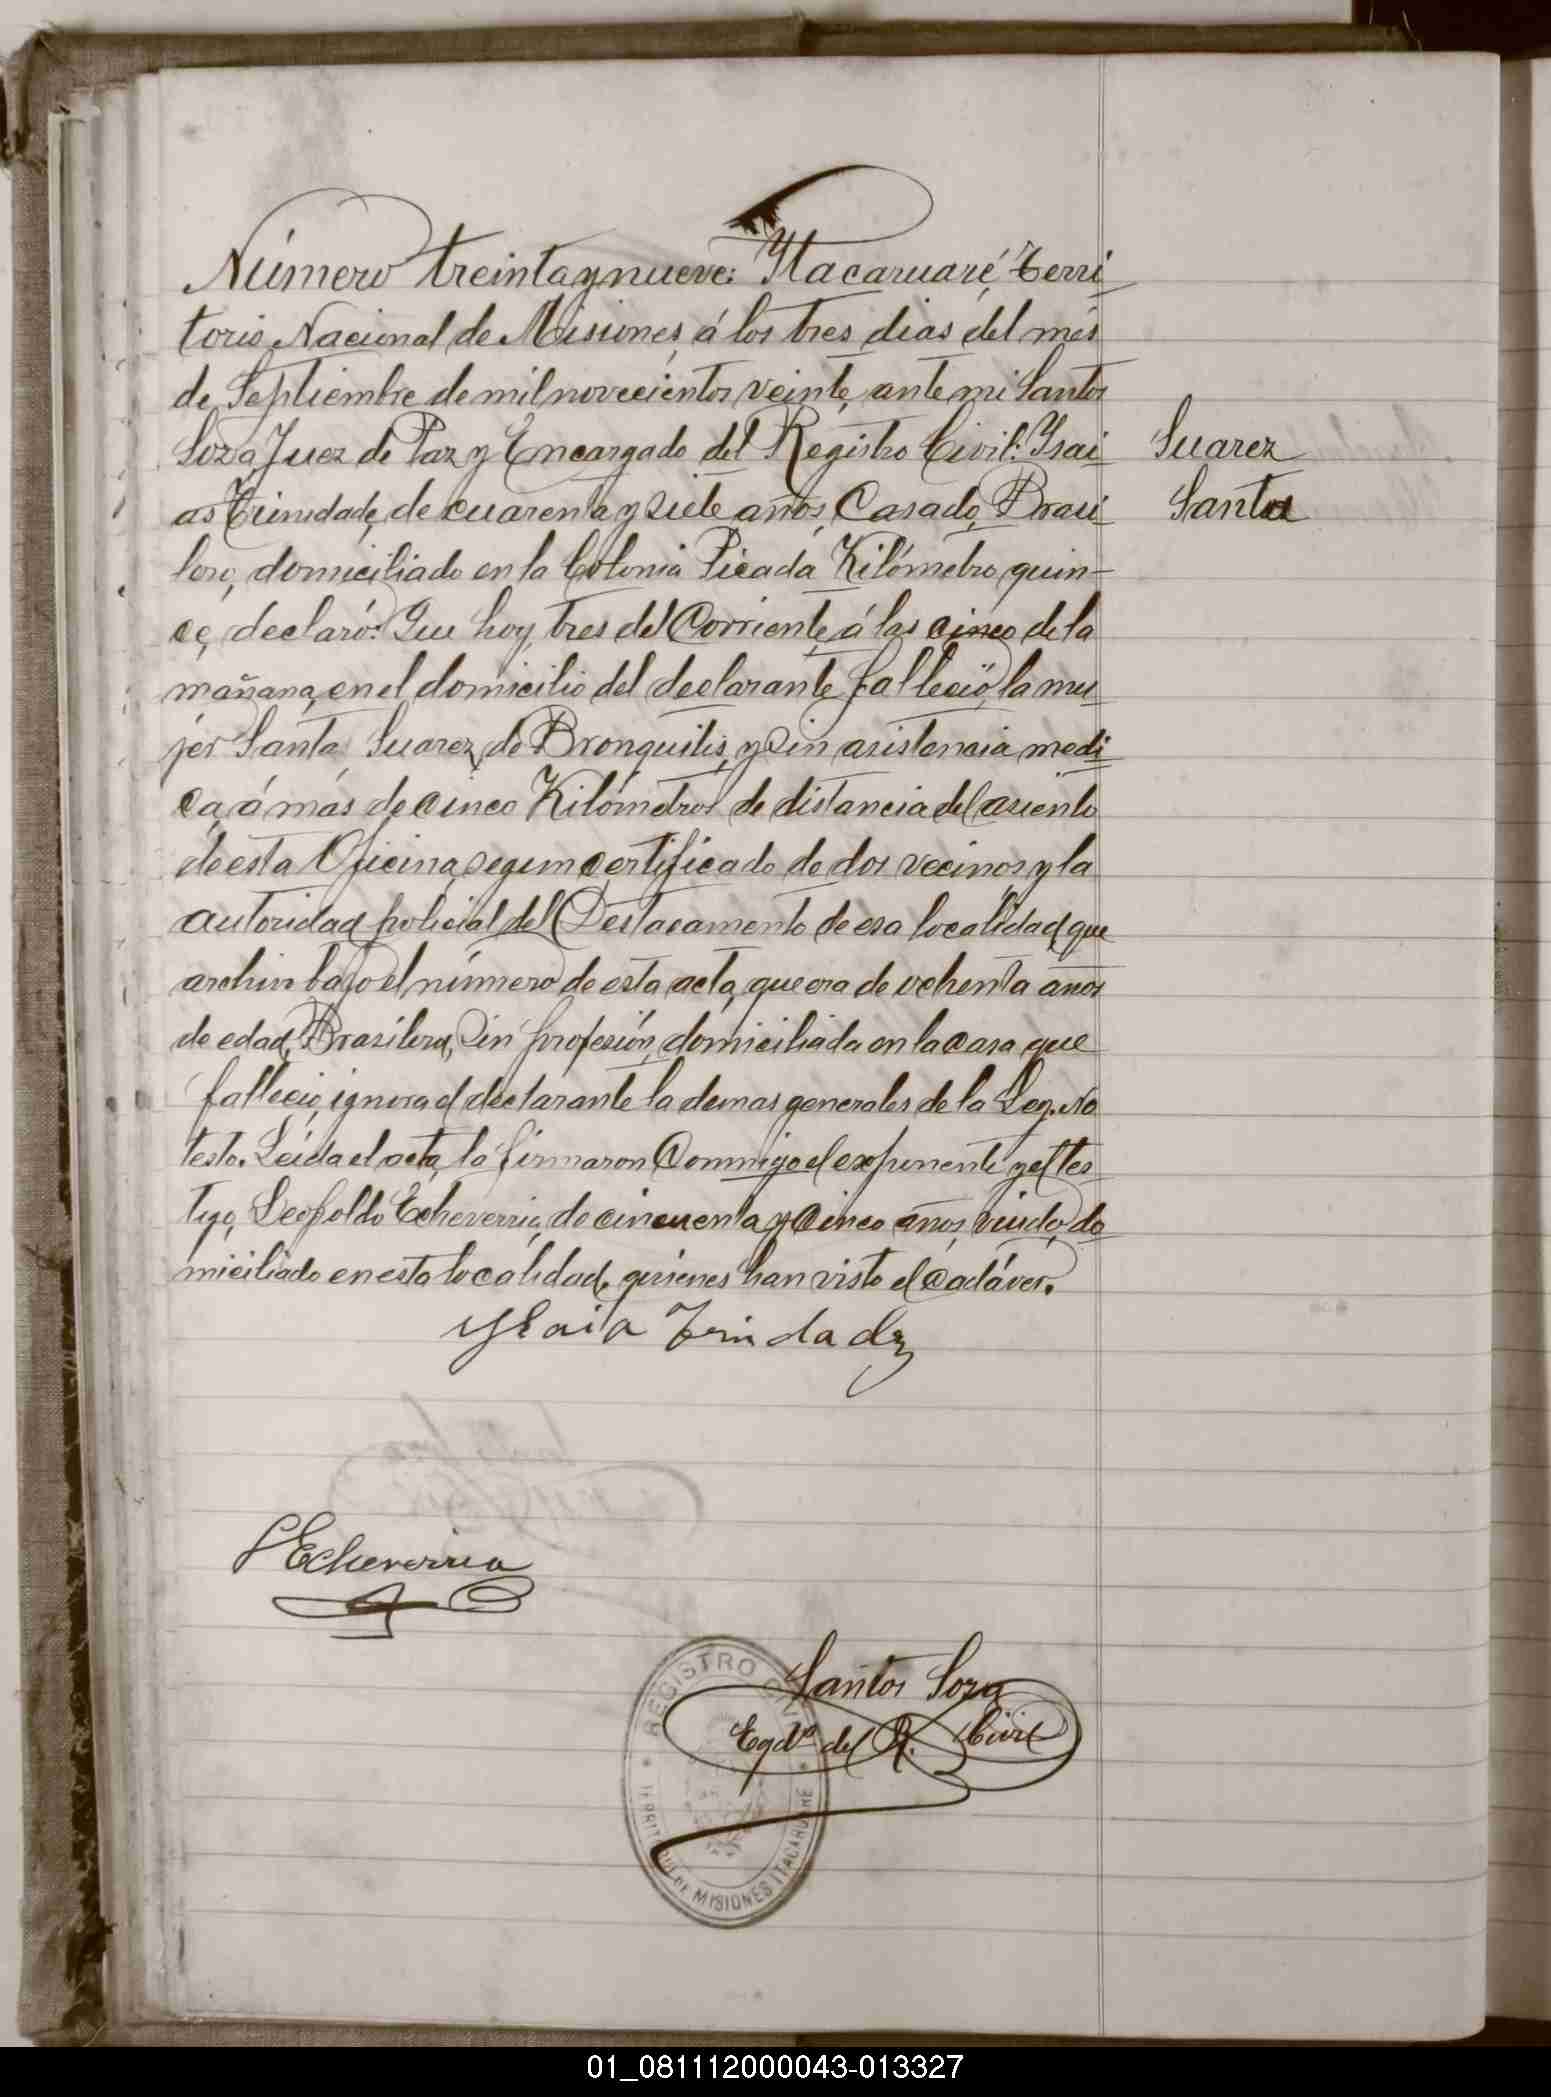 Número treinta y nueve: Ytacaruaré, Terri
torio Nacional de Misiones, á los tres dias del més
de Septiembre de mil novecientos veinte, ante mi Santos
Soza Juez de Paz y Encargado del Registro Civil: Ysai
as Trinidade, de cuarenta y siete años, Casado, Brasi
lero, domiciliado en la Colonia Picada Kilómetro quin-
ce, declaró: Que hoy, tres del Corriente, á las cinco de la
mañana, en el domicilio del declarante falleció, la mu
jer Santa Suarez, de Bronquitis, y sin asistencia medi
ca, á más de cinco Kilómetros de distancia del asiento
de esta Oficina, segun certificado de dos vecinos y la
autoridad policial del Destacamento de esa localidad que
archivo bajo el número de esta acta, que era de ochenta años
de edad, Brasilera, sin profesión, domiciliada en la casa que
falleció, ignora el declarante la demas generales de la Ley. No
testo. Leida el acta, la firmaron Conmigo el exponente y el tes
tigo, Leopoldo Echeverria, de cincuenta y cinco años, viudo, do
miciliado en esta localidad, quienes han visto el Cadáver.
Suarez
Santa
Ysaia Trindade
L Echeverria
Santos Soza
Egdo. del R. Civil
REGISTRO CIVIL
TERRITORIO DE MISIONES ITACARUARÉ
01_081112000043-013327